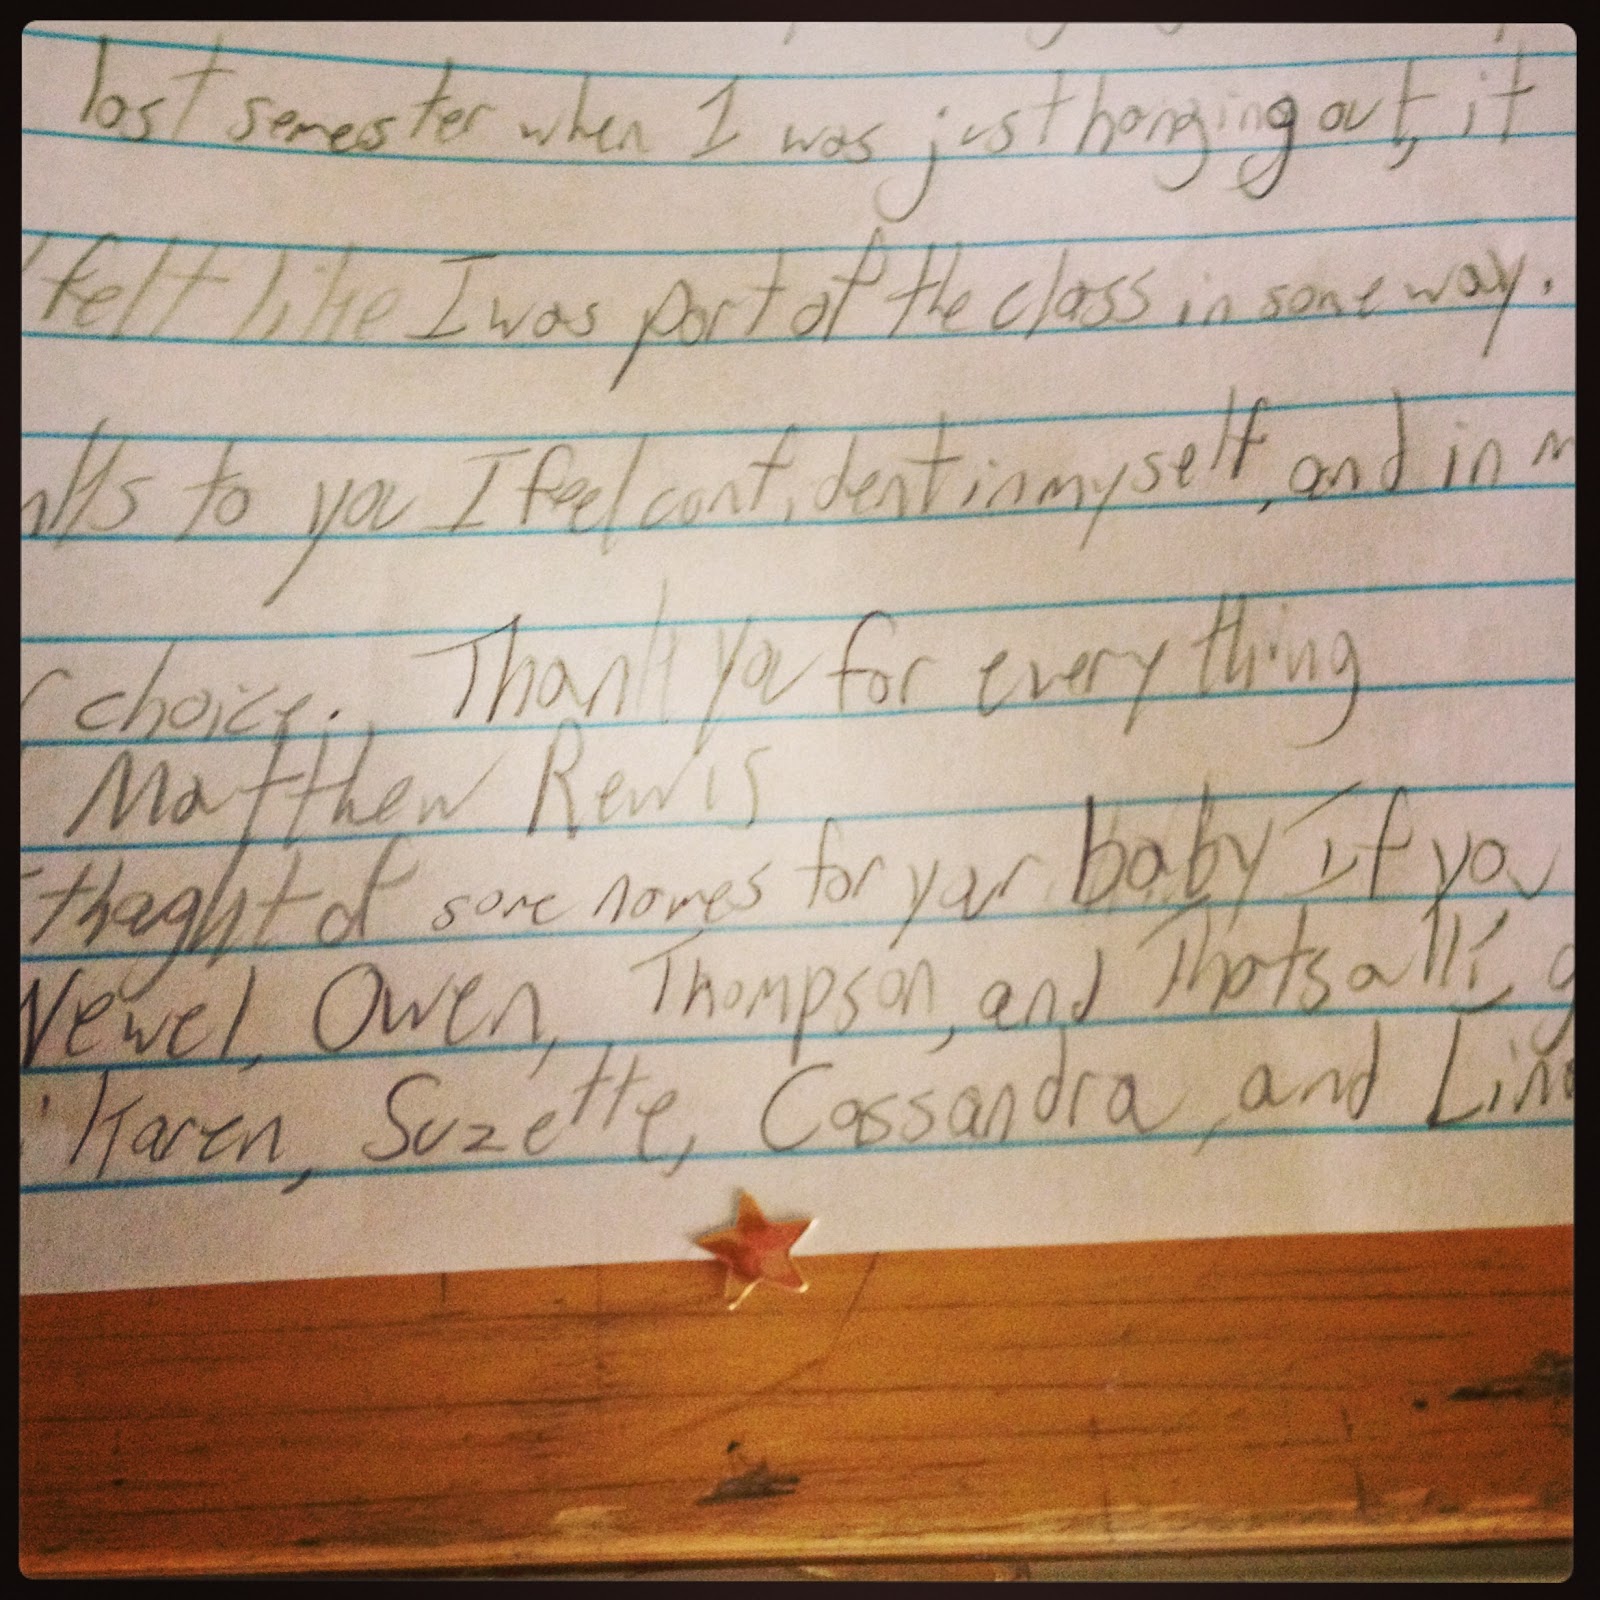 last semester when I was just hanging out, it
felt like I was part of the class in some way.
to you I feel confident in myself, and in
choice. Thank you for every thing
Matthew Rewis
thought of some names for your baby if you
Newel, Owen, Thompson, and Thats all
Karen, Suzette, Cassandra, and